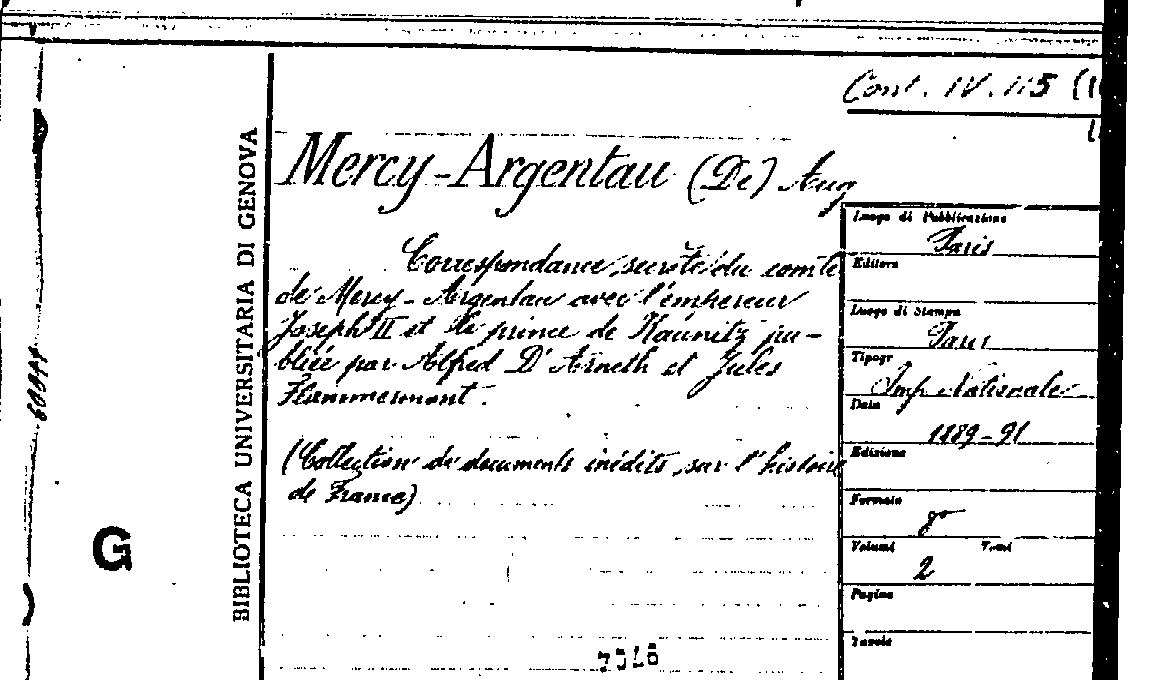 Cont. IV. 115 (1
BIBLIOTECA UNIVERSITARIA DI GENOVA
Mercy-Argentau (De) Aug
Correspondance secrète du comte
de Mercy-Argentau avec l'empereur
Joseph II et le prince de Kaunitz pu-
bliée par Alfred D'Arneth et Jules
Flammermont.
(Collection de documents inédits sur l'histoire
de France)
Luogo di Pubblicazione
Paris
Editore
Luogo di Stampa
Paris
Tipogr
Imp. Nationale
Data
1889-91
Edizione
Formato
8°
Volumi Tomi
2
Pagine
Tavole
G